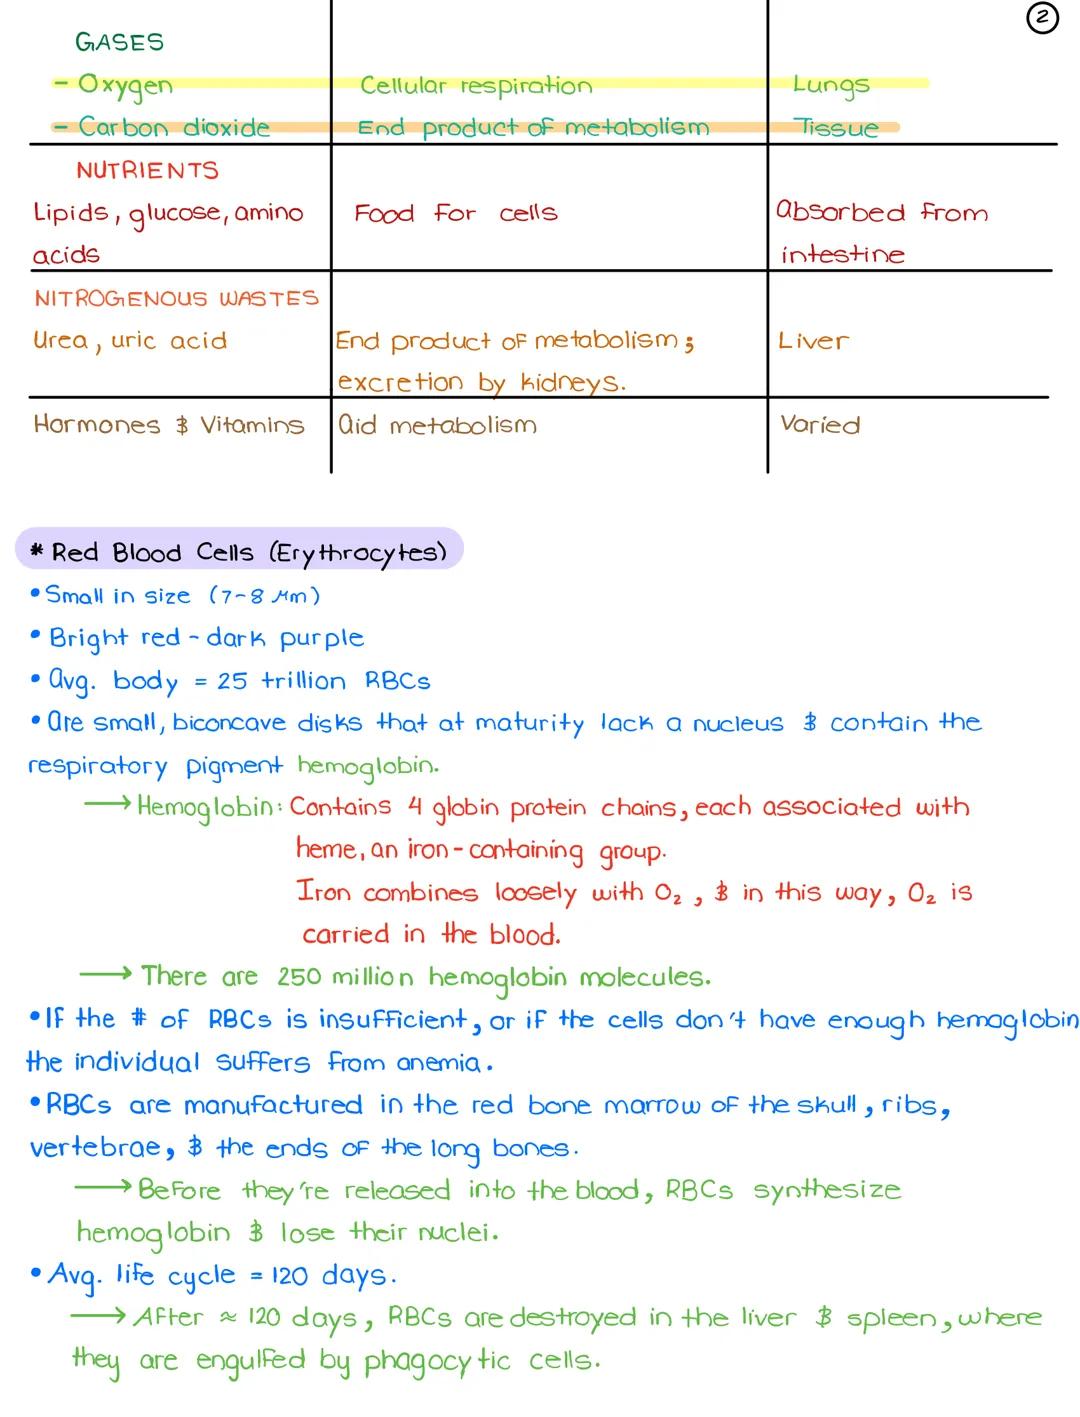 2
GASES
- Oxygen Cellular respiration Lungs
- Carbon dioxide End product of metabolism Tissue
NUTRIENTS
Lipids, glucose, amino Food for cells absorbed from
acids intestine
NITROGENOUS WASTES
Urea, uric acid End product of metabolism; Liver
excretion by kidneys.
Hormones & Vitamins aid metabolism Varied
* Red Blood Cells (Erythrocytes)
• Small in size (7-8 μm)
• Bright red - dark purple
• avg. body = 25 trillion RBCs
• are small, biconcave disks that at maturity lack a nucleus & contain the
respiratory pigment hemoglobin.
→ Hemoglobin: Contains 4 globin protein chains, each associated with
heme, an iron-containing group.
Iron combines loosely with O₂, & in this way, O₂ is
carried in the blood.
→ There are 250 million hemoglobin molecules.
• If the # of RBCs is insufficient, or if the cells don't have enough hemoglobin
the individual suffers from anemia.
• RBCs are manufactured in the red bone marrow of the skull, ribs,
vertebrae, & the ends of the long bones.
→ Before they're released into the blood, RBCs synthesize
hemoglobin & lose their nuclei.
• Avg. life cycle = 120 days.
→ After ≈ 120 days, RBCs are destroyed in the liver & spleen, where
they are engulfed by phagocytic cells.